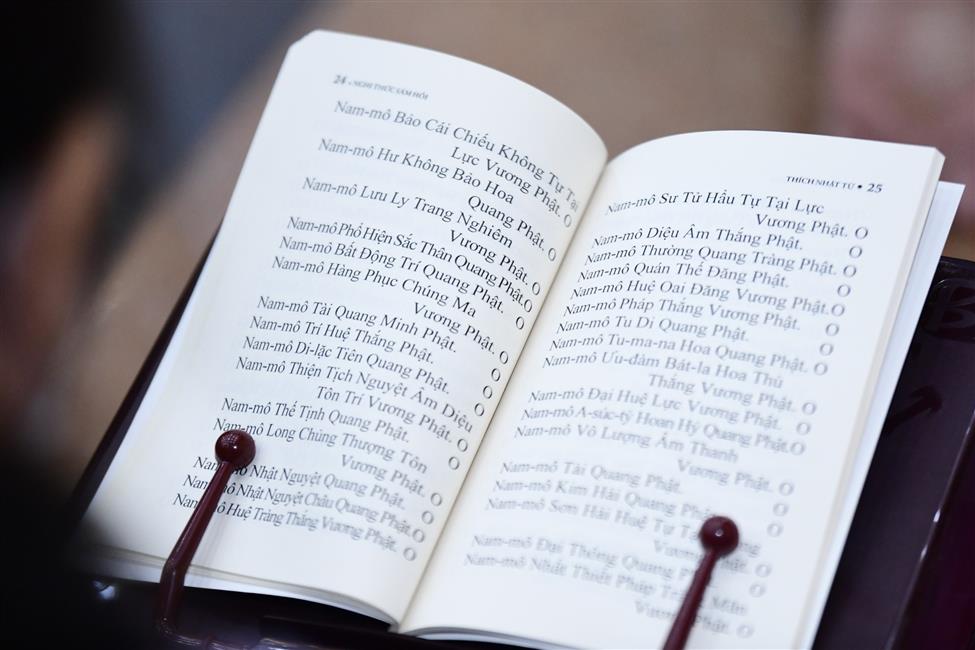 24 • NGHI THỨC SÁM HỐI
Nam-mô Bảo Cái Chiếu Không Tự Tại
Lực Vương Phật. O
Nam-mô Hư Không Bảo Hoa
Quang Phật. O
Nam-mô Lưu Ly Trang Nghiêm
Vương Phật. O
Nam-mô Phổ Hiện Sắc Thân Quang Phật. O
Nam-mô Bất Động Trí Quang Phật. O
Nam-mô Hàng Phục Chúng Ma
Vương Phật. O
Nam-mô Tài Quang Minh Phật. O
Nam-mô Trí Huệ Thắng Phật. O
Nam-mô Di-lặc Tiên Quang Phật. O
Nam-mô Thiện Tịch Nguyệt Âm Diệu
Tôn Trí Vương Phật. O
Nam-mô Thế Tịnh Quang Phật. O
Nam-mô Long Chủng Thượng Tôn
Vương Phật. O
Nam-mô Nhật Nguyệt Quang Phật. O
Nam-mô Nhật Nguyệt Châu Quang Phật. O
Nam-mô Huệ Tràng Thắng Vương Phật. O
THÍCH NHẬT TỪ • 25
Nam-mô Sư Tử Hầu Tự Tại Lực
Vương Phật. O
Nam-mô Diệu Âm Thắng Phật. O
Nam-mô Thường Quang Tràng Phật. O
Nam-mô Quán Thế Đăng Phật. O
Nam-mô Huệ Oai Đăng Vương Phật. O
Nam-mô Pháp Thắng Vương Phật. O
Nam-mô Tu Di Quang Phật. O
Nam-mô Tu-ma-na Hoa Quang Phật. O
Nam-mô Ưu-đàm Bát-la Hoa Thù
Thắng Vương Phật. O
Nam-mô Đại Huệ Lực Vương Phật. O
Nam-mô A-súc-tỳ Hoan Hỷ Quang Phật. O
Nam-mô Vô Lượng Âm Thanh
Vương Phật. O
Nam-mô Tài Quang Phật. O
Nam-mô Kim Hải Quang Phật. O
Nam-mô Sơn Hải Huệ Tự
Vương Phật. O
Nam-mô Đại Thông Quang Phật. O
Nam-mô Nhất Thiết Pháp Mãn
Vương Phật. O